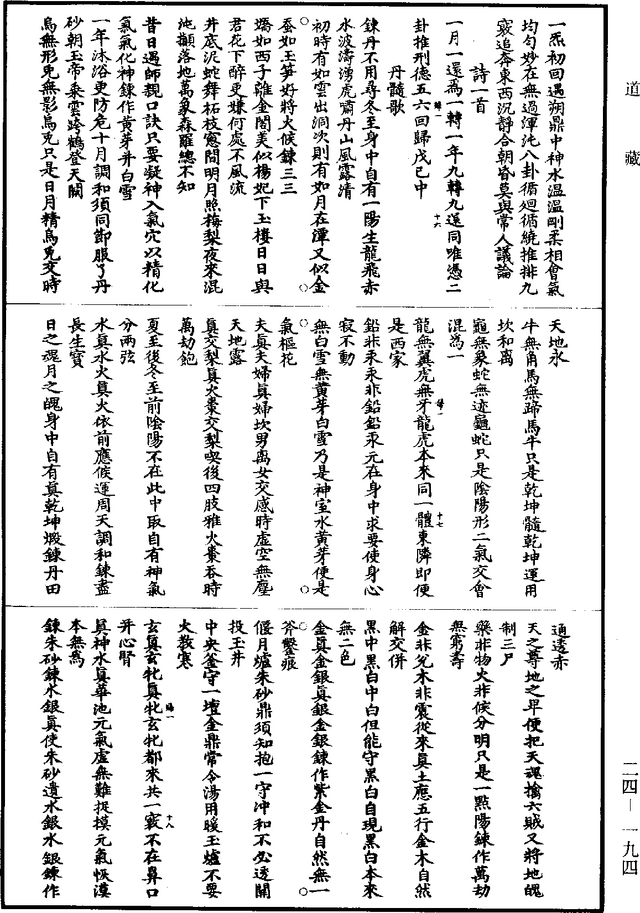 道藏
一炁初回遇朔鼎中神水溫溫剛柔相會氣
均勻妙在無過渾沌八卦循迴循繞推排九
竅追奔東西沉靜合朝昏莫與常人議論
詩一首
一月一還爲一轉一年九轉九還同唯憑二
卦推刑德五六回歸戊己中
丹髓歌
鍊丹不用尋冬至身中自有一陽生龍飛赤
水波濤湧虎嘯丹山風露清
初時有如雲出洞次則有如月在潭又似金
蚕如玉笋好將火候鍊三三
嬌如西子離金閣美似楊妃下玉樓日日與
君花下醉更嫌何處不風流
井底泥蛇舞柘枝窻間明月照梅梨夜來混
沌顛落地萬象森羅總不知
昔日遇師親口訣只要凝神入氣穴以精化
氣氣化神鍊作黃芽并白雪
一年沐浴更防危十月調和須同節服了丹
砂朝玉帝乘雲跨鶴登天闕
烏無形兎無影烏兎只是日月精烏兎交時
天地永
牛無角馬無蹄馬牛只是乾坤髓乾坤運用
坎和离
龜無象蛇無迹龜蛇只是陰陽形二氣交會
混爲一
龍無翼虎無牙龍虎本來同一體東隣即便
是西家
鉛非汞汞非鉛鉛汞元在身中求要使身心
寂不動
無白雪無黃芽白雪乃是神室水黃芽便是
氣樞花
夫真夫婦真婦坎男离女交感時虛空無塵
天地露
真交梨真火棗交梨喫後四肢雅火棗吞時
萬劫飽
夏至後冬至前陰陽不在此中取自有神氣
分兩弦
水真水火真火依前應候運周天調和鍊盡
長生寶
日之魂月之魄身中自有真乾坤煅鍊丹田
通透赤
天之尊地之卑便把天魂擒六賊又將地魄
制三尸
藥非物火非候分明只是一點陽鍊作萬劫
無窮壽
金非兊木非震從來真土應五行金木自然
解交併
黑中黑白中白但能守黑白自現黑白本來
無二色
金真金銀真銀金銀鍊作紫金丹自然無一
斧鑿痕
偃月爐朱砂鼎須知抱一守沖和不必透關
投玉井
中央釜守一壇金鼎常令湯用暖玉爐不要
火教寒
玄真玄牝真牝玄牝都來共一竅不在鼻口
并心腎
真神水真華池元氣虛無難捉摸元氣恢漠
本無爲
鍊朱砂鍊水銀真使朱砂遺水銀水銀鍊作
二四—一九四